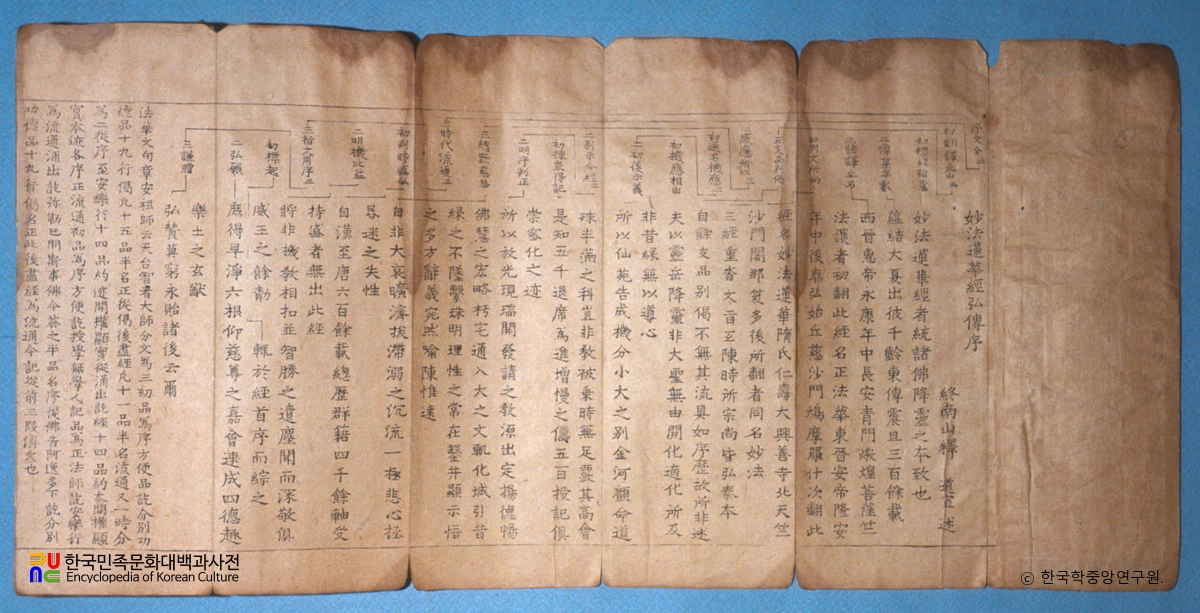 妙法蓮華經弘傳序
終南山釋 道宣 述
妙法蓮華經者統諸佛降靈之本致也
蘊結大夏出彼千齡東傳震旦三百餘載
西晉惠帝永康年中長安青門燉煌菩薩竺
法護者初翻此經名正法華東晉安帝隆安
年中後秦弘始丘慈沙門鳩摩羅什次翻此
經名妙法蓮華隋氏仁壽大興善寺北天竺
沙門闍那笈多後所翻者同名妙法
三經重沓文旨互陳時所宗尚皆弘秦本
自餘支品別偈不無其流具如序歷故所非述
夫以靈岳降靈非大聖無由開化適化所及
非昔緣無以導心
所以仙苑告成機分小大之別金河顧命道
殊半滿之科豈非教被乘時無足覈其高會
是知五千退席為進增慢之儔五百授記俱
崇密化之迹
所以放光現瑞開發請之教源出定揚德暢
佛慧之宏略朽宅通入大之文軌化城引昔
緣之不墜繫珠明理性之常在鑿井顯示悟
之多方辭義宛然喻陳惟遠
自非大哀曠濟拔滯溺之沉流一極悲心拯
昬迷之失性
自漢至唐六百餘載總歷群籍四千餘軸受
持盛者無出此經
將非機教相扣並智勝之遺塵聞而深敬俱
威王之餘勣 輒於經首序而綜之
庶得早淨六根仰慈尊之嘉會速成四德趣
樂土之玄猷
弘贊莫窮永貽諸後云爾
初機應相由
二初後示義
三時代流通
二明機比益
三指之用序
初標起
二弘願
三謙贈
法華文句章安祖師云天台智者大師分文爲三初品爲序方便品訖分別功
德品十九行偈凡十五品半名正從偈後盡經凡十一品半名流通又一時分
爲二從序至安樂行十四品約迹開權顯實從涌出訖經十四品約本開權顯
實本迹各序正流通初品爲序方便訖授學無學人記品爲正法師訖安樂行
爲流通涌出訖弥勒已問斯事佛今答之半品名序從佛告阿逸多下訖分別
功德品十九行偈名正此後盡經爲流通今記從前三段消文也
한국민족문화대백과사전
Encyclopedia of Korean Culture
© 한국학중앙연구원.